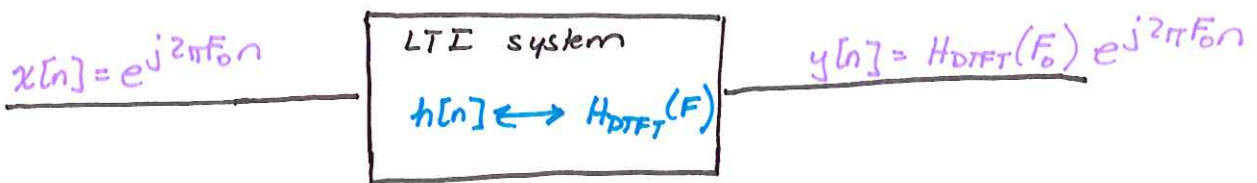 x[n] = e^{j2πF₀n}
LTI system
h[n] ⟷ H_{DTFT}(F)
y[n] = H_{DTFT}(F₀) e^{j2πF₀n}